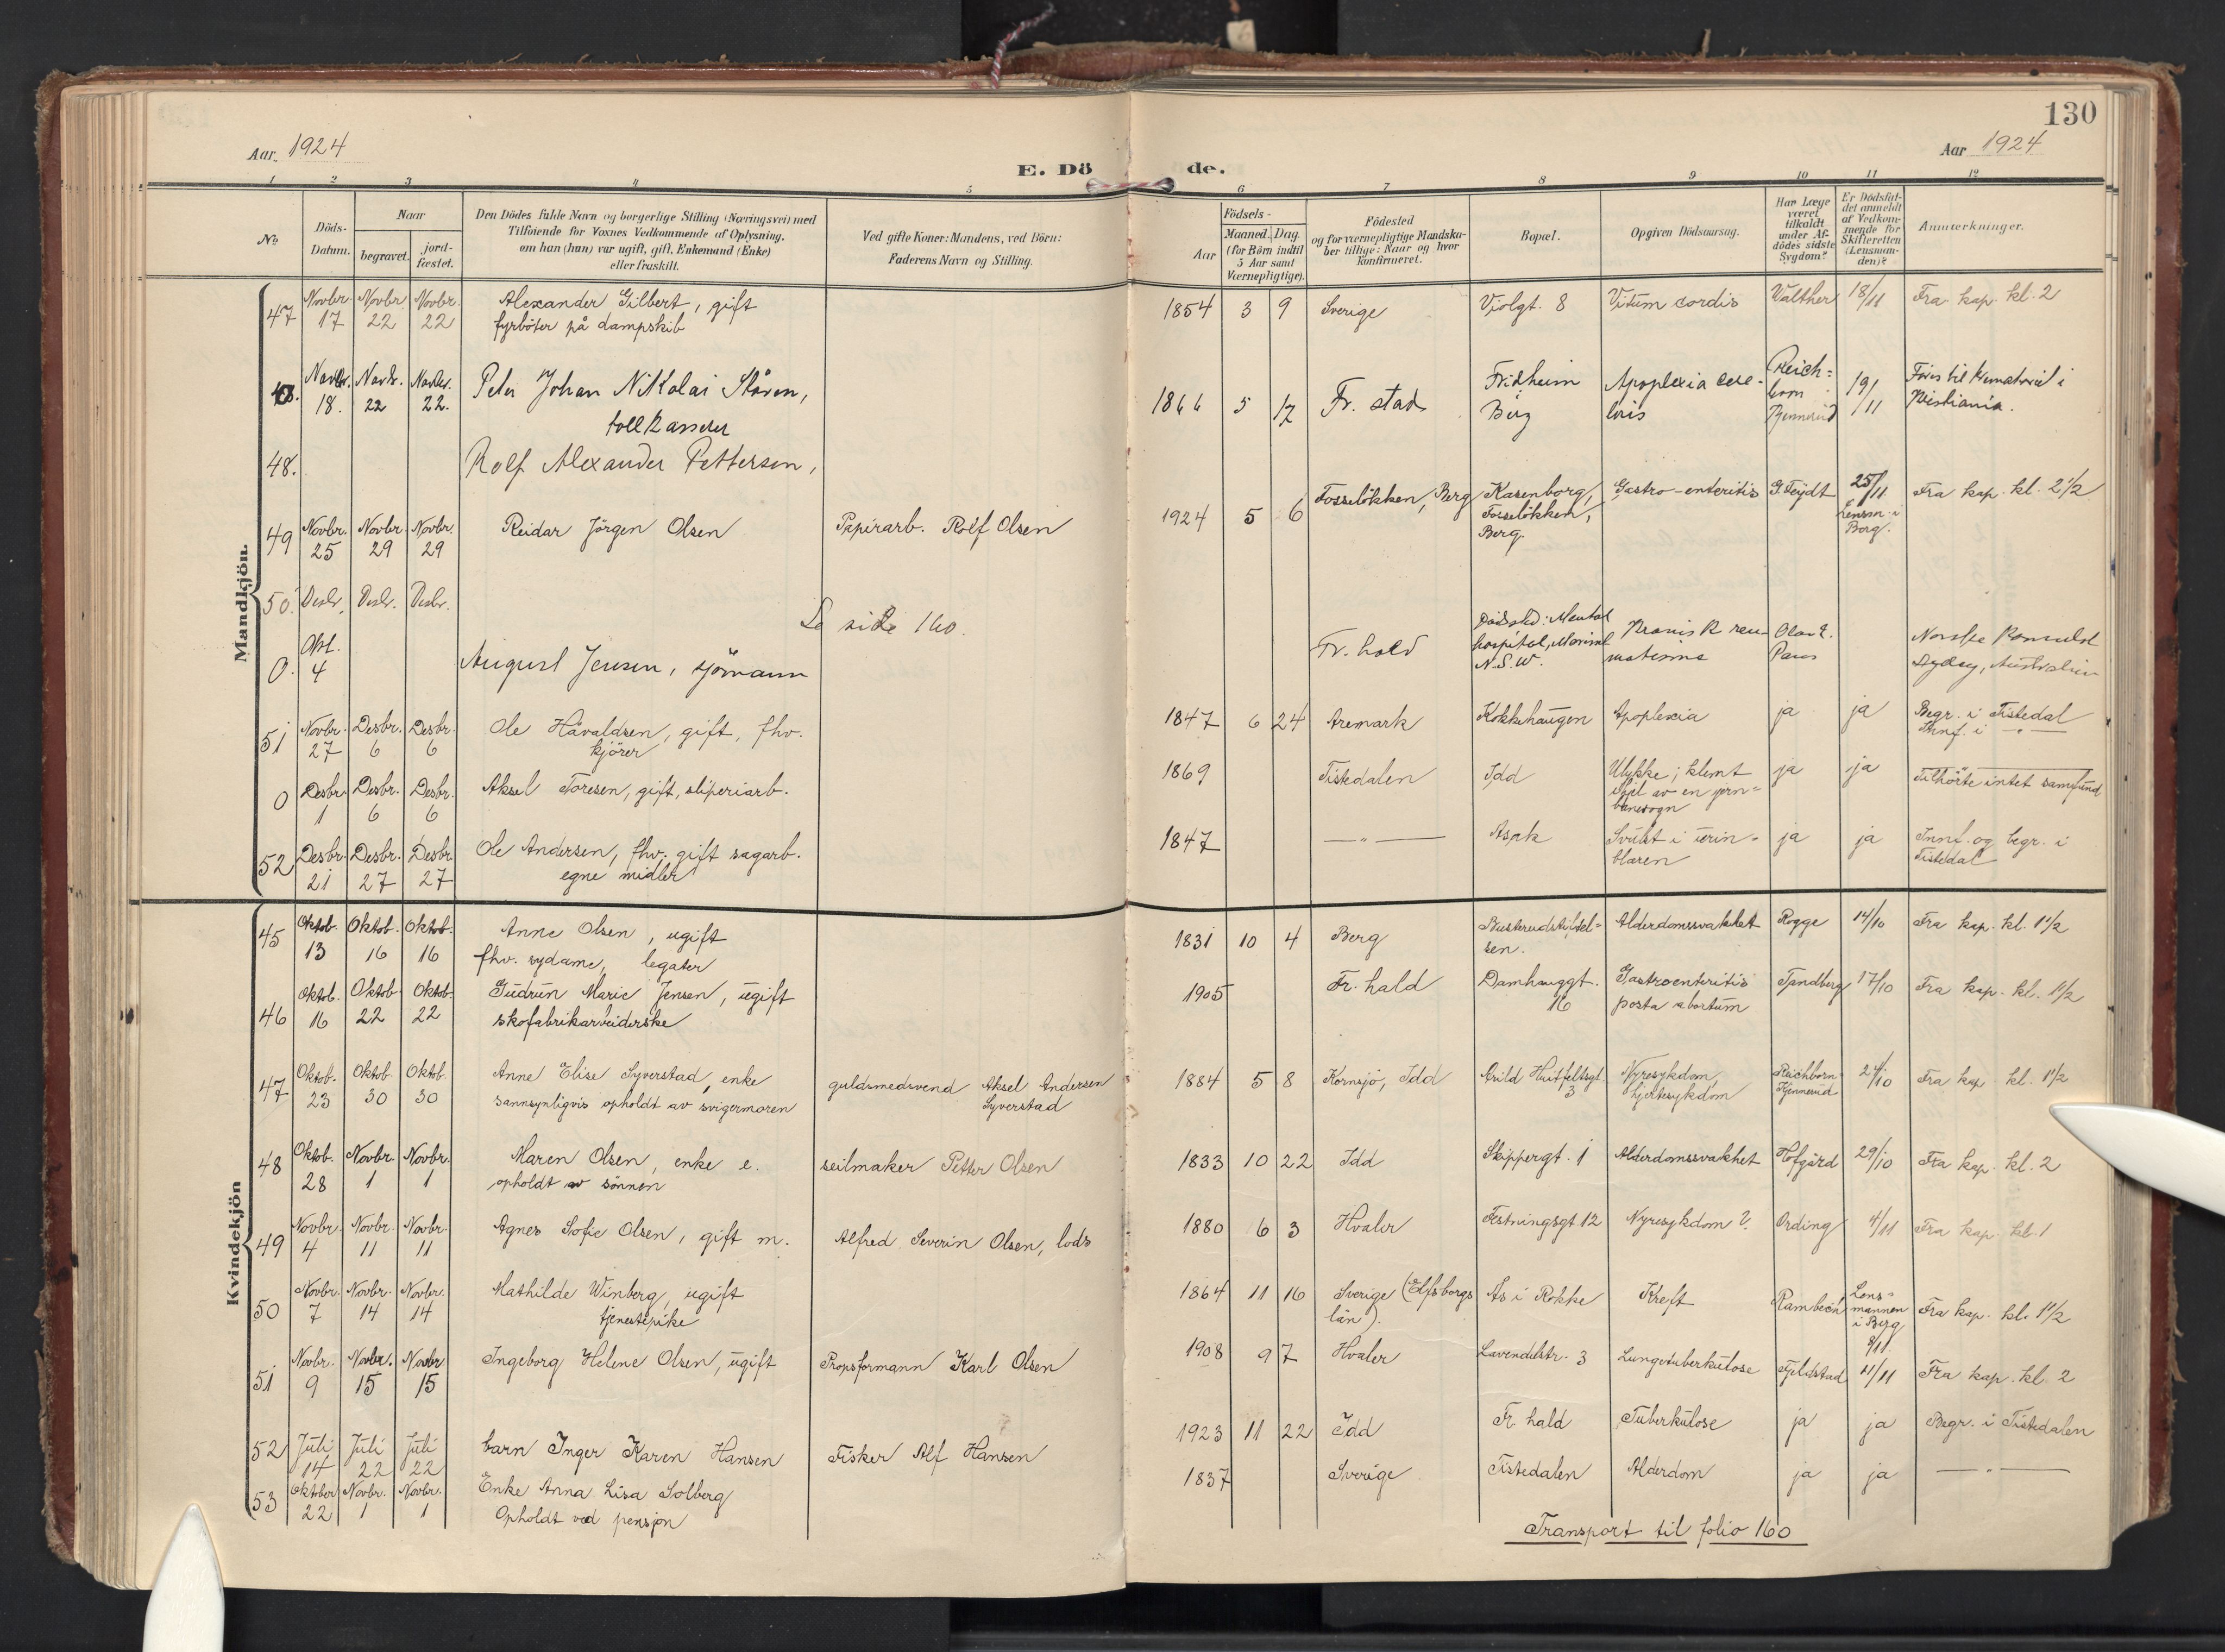 130
Aar 1924
Aar 1924
E. Dö de.
1 2 3 4 5 6 7 8 9 10 11 12
No
Döds-Datum.
Naar
begravet.
jord-fæstet.
Den Dödes fulde Navn og borgerlige Stilling (Næringsvei) med
Tilföiende for Voxnes Vedkommende af Oplysning,
om han (hun) var ugift, gift, Enkemand (Enke)
eller fraskilt.
Ved gifte Koner: Mandens, ved Börn:
Faderens Navn og Stilling.
Födsels-
Aar
Maaned. Dag.
(for Börn indtil
5 Aar samt
Værnepligtige).
Födested
og for værnepligtige Mandska-
ber tillige: Naar og hvor
konfirmeret.
Bopæl.
Opgiven Dödsaarsag.
Har Læge
været
tilkaldt
under Af-
dödes sidste
Sygdom?
Er Dödsfal-
det anmeldt
af Vedkom-
mende for
Skifteretten
(Lensman-
den)?
Anmærkninger.
Mandkjön.
47 Novbr. Novbr. Novbr. Alexander Gilbert, gift 1854 3 9 Sverige Violgt. 8 Vitum cordis Walther 18/11 Fra kap. kl. 2
17 22 22 fyrböter på dampskib
48. Novbr. Novbr. Novbr. Peter Johan Nikolai Stören, 1866 5 12 Fr. stad Fridheim Apoplexia cere- Reich= 19/11 Föres til krematoriet i
18. 22 22. tollkasserer Berg bris born Kristiania.
Kjennerud
48. Rolf Alexander Pettersen,
49 Novbr. Novbr. Novbr. Reidar Jörgen Olsen Papirarb. Rolf Olsen 1924 5 6 Fosselökken, Berg Karenborg, Gastro-enteritis G. Feydt 25/11 Fra kap. kl. 2 1/2
25 29 29 Fosselökken, Lensm. i
Berg. Berg.
50. Desbr. Desbr. Desbr.
Se side 160.
0. Okt. August Jensen, sjömann Fr. hald Dödssted: Mental Kronisk reu- Norske Konsulat
4 hospital, N.S.W. matisme Sydney, Australien
51 Novbr. Desbr. Desbr. Ole Håvaldsen, gift, fhv. 1847 6 24 Aremark Kokkehaugen Apoplexia ja ja Begr. i Tistedal
27 6 6 kjörer Innf. i —"—
0 Desbr. Desbr. Desbr. Aksel Toresen, gift, sliperiarb. 1869 Tistedalen Idd Ulykke; klemt ja ja Tilhörte intet samfund
1 6 6 ihjel av en jern=
banevogn
52 Desbr. Desbr. Desbr. Ole Andersen, fhv. gift sagarb. 1847 —"— Aspk Svulst i urin= ja ja Innf. og begr. i
21 27 27 egne midler blæren Tistedal
Kvindekjön
45 Oktob. Oktob. Oktob. Anne Olsen, ugift 1831 10 4 Berg Busterudstiftel= Alderdomssvakhet Rogge 14/10 Fra kap. kl. 1 1/2
13 16 16 fhv. sydame, legater sen.
46 Oktob. Oktob. Oktob. Gudrun Marie Jensen, ugift 1905 Fr. hald Damhauggt. Gastroenteritis Tandberg 17/10 Fra kap. kl. 1 1/2
16 22 22 skofabrikarbeiderske 16 posta abortum
47 Oktob. Oktob. Oktob. Anne Elise Syverstad, enke guldsmedsvend Aksel Andersen 1884 5 8 Kornsjö, Idd Arild Huitfeltsgt. Nyresykdom, Reichborn 24/10 Fra kap. kl. 1 1/2
23 30 30 sannsynligvis opholdt av svigermoren Syverstad 3 hjertesykdom Kjennerud
48 Oktob. Novbr. Novbr. Maren Olsen, enke e. seilmaker Petter Olsen 1833 10 22 Idd Skippergt. 1 Alderdomssvakhet Hofgård 29/10 Fra kap. kl. 2
28 1 1 opholdt av sönnen
49 Novbr. Novbr. Novbr. Agnes Sofie Olsen, gift m. Alfred Severin Olsen, lods 1880 6 3 Hvaler Festningsgt 12 Nyresykdom? Ording 4/11 Fra kap. kl. 1
4 11 11
50 Novbr. Novbr. Novbr. Mathilde Winberg, ugift 1864 11 16 Sverige (Elfsborgs Ås i Rokke Kreft Rambech Lens= Fra kap. kl. 1 1/2
7 14 14 tjenestepike län). mannen
i Berg
8/11.
51 Novbr. Novbr. Novbr. Ingeborg Helene Olsen, ugift Propsformann Karl Olsen 1908 9 7 Hvaler Lavendelstr. 3 Lungetuberkulose Fjeldstad 11/11 Fra kap. kl. 2
9 15 15
52 Juli Juli Juli barn Inger Karen Hansen Fisker Alf Hansen 1923 11 22 Idd Fr. hald Tuberkulose ja ja Begr. i Tistedalen
14 22 22
53 Oktober Novbr. Novbr. Enke Anna Lisa Solberg 1837 Sverige Tistedalen Alderdom ja ja —"—
22 1 1 Opholdt ved pensjon
Transport til folio 160